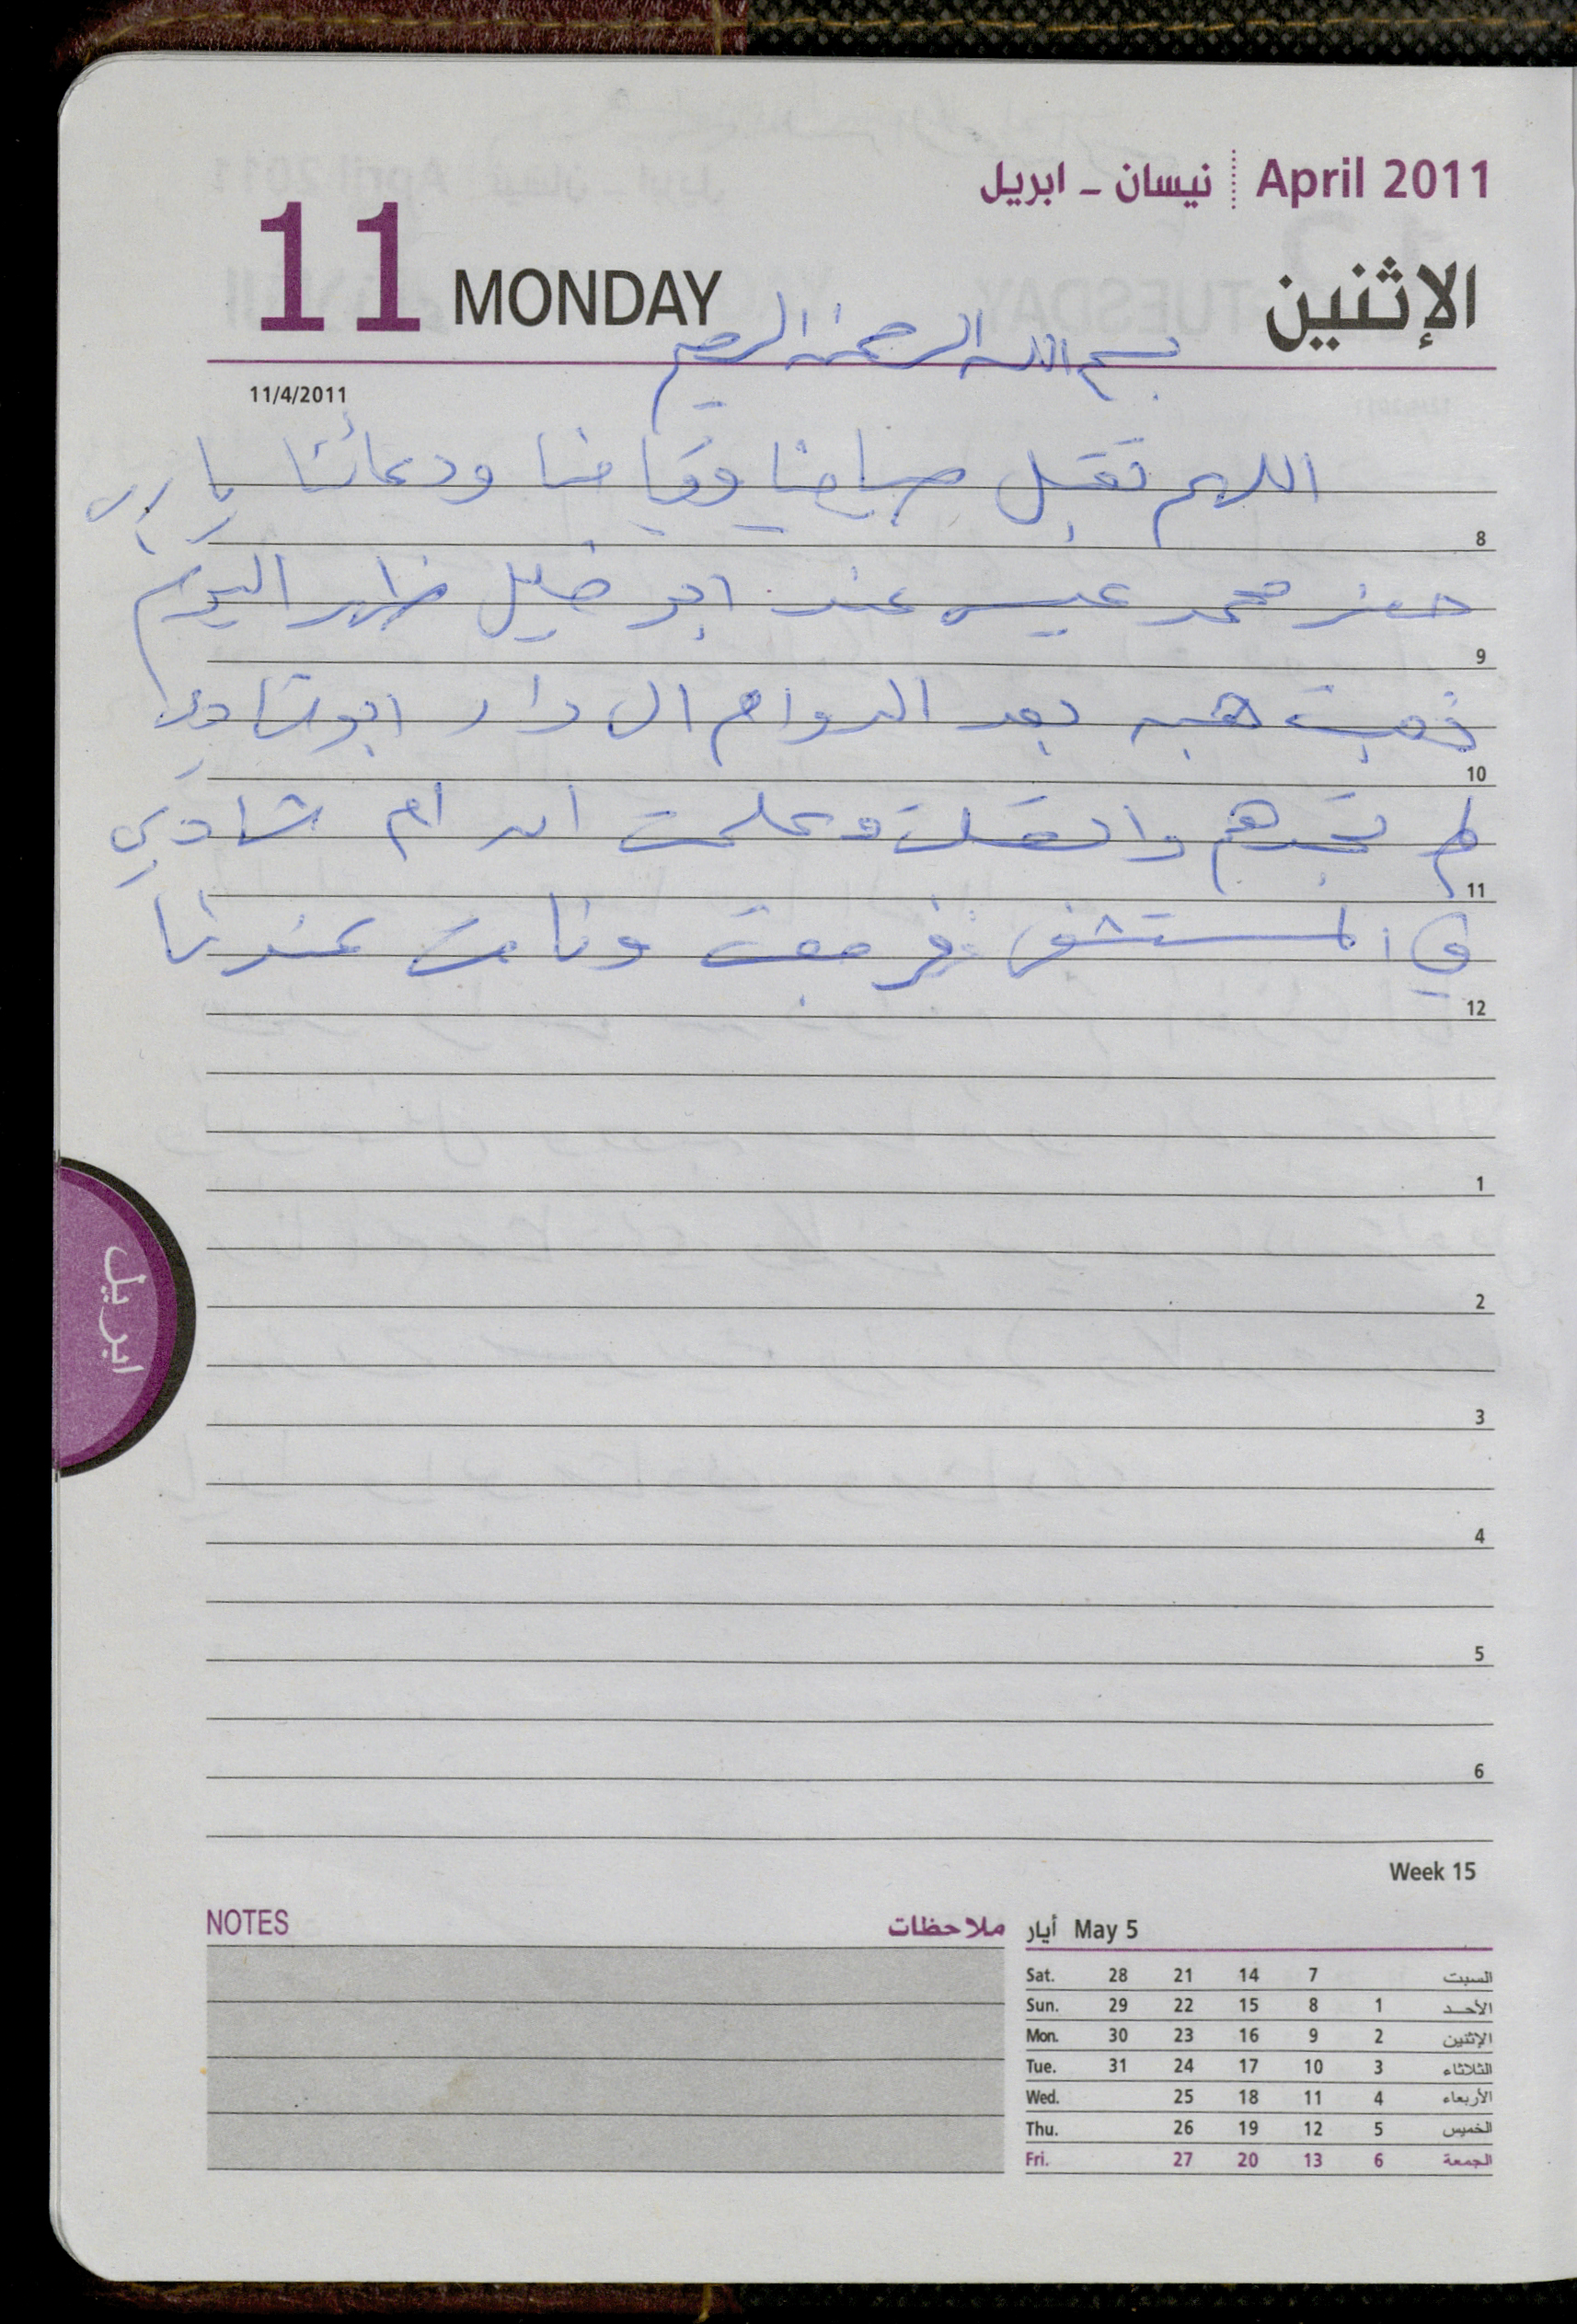 April 2011 نيسان - ابريل
11 MONDAY الإثنين
بسم الله الرحمن الرحيم
11/4/2011
اللهم تقبل صيامنا وقيامنا ودعائنا يا رب
8
حضر محمد عيسى عند ابو خليل ظهر اليوم
9
ذهبت هبه بعد الدوام الى دار ابو شادي
10
لم تجدهم واتصلت وعلمت ان ام شادي
11
في المستشفى فرجعت ونامت عندنا
12
1
2
ابريل
3
4
5
6
Week 15
NOTES ملاحظات
أيار May 5
Sat. 28 21 14 7 السبت
Sun. 29 22 15 8 1 الأحد
Mon. 30 23 16 9 2 الإثنين
Tue. 31 24 17 10 3 الثلاثاء
Wed. 25 18 11 4 الأربعاء
Thu. 26 19 12 5 الخميس
Fri. 27 20 13 6 الجمعة